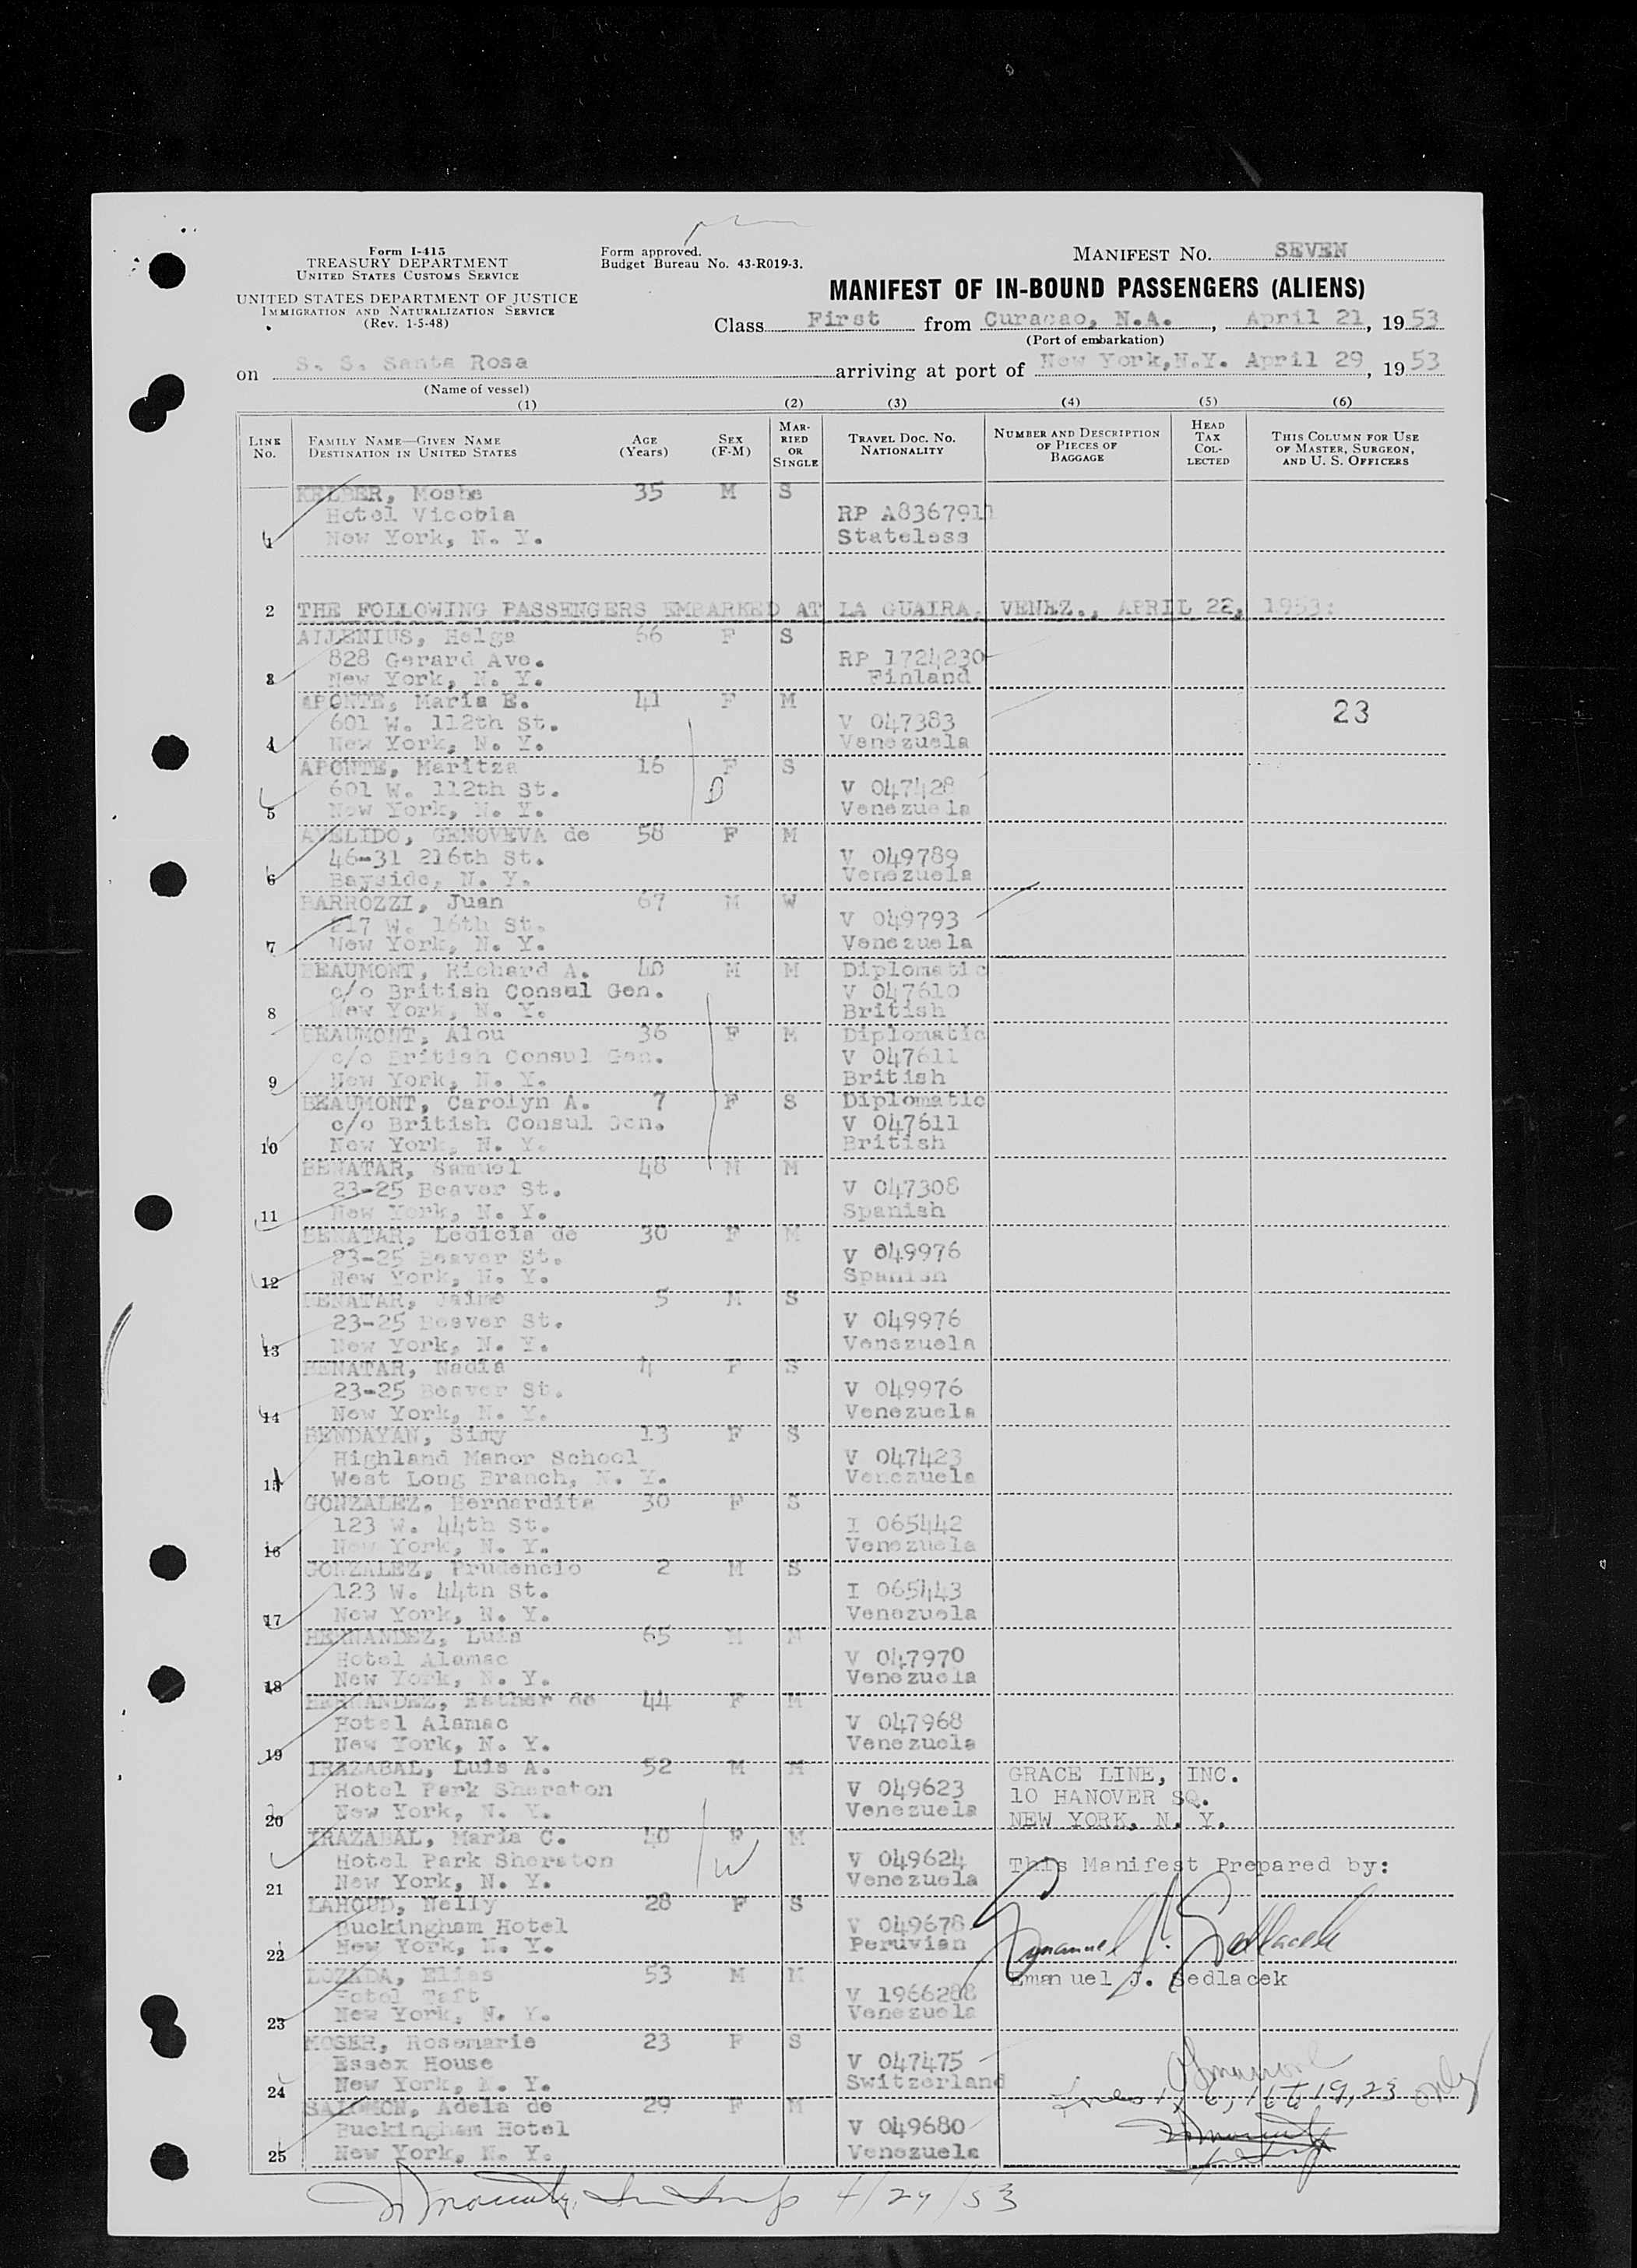 Form I-415
TREASURY DEPARTMENT
UNITED STATES CUSTOMS SERVICE
UNITED STATES DEPARTMENT OF JUSTICE
IMMIGRATION AND NATURALIZATION SERVICE
(Rev. 1-5-48)
Form approved.
Budget Bureau No. 43-R019-3.
MANIFEST NO. SEVEN
MANIFEST OF IN-BOUND PASSENGERS (ALIENS)
Class First from Curacao, N.A., April 21, 1953
(Port of embarkation)
on S. S. Santa Rosa arriving at port of New York, N.Y. April 29, 1953
(Name of vessel)
(1) (2) (3) (4) (5) (6)
LINE No. FAMILY NAME—GIVEN NAME DESTINATION IN UNITED STATES AGE (Years) SEX (F-M) MARRIED OR SINGLE TRAVEL DOC. NO. NATIONALITY NUMBER AND DESCRIPTION OF PIECES OF BAGGAGE HEAD TAX COLLECTED THIS COLUMN FOR USE OF MASTER, SURGEON, AND U. S. OFFICERS
KELBER, Moshe 35 M S
Hotel Vicobia RP A8367911
1 New York, N. Y. Stateless
2 THE FOLLOWING PASSENGERS EMBARKED AT LA GUAIRA, VENEZ., APRIL 22, 1953:
AILENIUS, Helga 66 F S
828 Gerard Ave. RP 1724230
3 New York, N. Y. Finland
APONTE, Maria E. 41 F M
601 W. 112th St. V 047383 23
4 New York, N. Y. Venezuela
APONTE, Maritza 16 F S
601 W. 112th St. V 047428
5 New York, N. Y. Venezuela
AVELIDO, GENOVEVA de 58 F M
46-31 216th St. V 049789
6 Bayside, N. Y. Venezuela
BARROZZI, Juan 67 M W
217 W. 16th St. V 049793
7 New York, N. Y. Venezuela
BEAUMONT, Richard A. 40 M M Diplomatic
c/o British Consul Gen. V 047610
8 New York, N. Y. British
BEAUMONT, Alou 36 F M Diplomatic
c/o British Consul Gen. V 047611
9 New York, N. Y. British
BEAUMONT, Carolyn A. 7 F S Diplomatic
c/o British Consul Gen. V 047611
10 New York, N. Y. British
BENATAR, Samuel 48 M M
23-25 Beaver St. V 047308
11 New York, N. Y. Spanish
BENATAR, Ledicia de 30 F M
23-25 Beaver St. V 049976
12 New York, N. Y. Spanish
BENATAR, Jaime 5 M S
23-25 Beaver St. V 049976
13 New York, N. Y. Venezuela
BENATAR, Nadia 4 F S
23-25 Beaver St. V 049976
14 New York, N. Y. Venezuela
BENDAYAN, Simy 13 F S
Highland Manor School V 047423
15 West Long Branch, N. Y. Venezuela
GONZALEZ, Bernardita 30 F S
123 W. 44th St. I 065442
16 New York, N. Y. Venezuela
GONZALEZ, Prudencio 2 M S
123 W. 44th St. I 065443
17 New York, N. Y. Venezuela
HERNANDEZ, Luis 65 M M
Hotel Alamac V 047970
18 New York, N. Y. Venezuela
HERNANDEZ, Esther de 44 F M
Hotel Alamac V 047968
19 New York, N. Y. Venezuela
IRAZABAL, Luis A. 52 M M GRACE LINE, INC.
Hotel Park Sheraton V 049623 10 HANOVER SQ.
20 New York, N. Y. Venezuela NEW YORK, N. Y.
IRAZABAL, Maria C. 40 F M
Hotel Park Sheraton V 049624 This Manifest Prepared by:
21 New York, N. Y. Venezuela
LAHOUD, Nelly 28 F S
Buckingham Hotel V 049678
22 New York, N. Y. Peruvian Emanuel J. Sedlacek
LOZADA, Elias 53 M M Emanuel J. Sedlacek
Hotel Taft V 1966288
23 New York, N. Y. Venezuela
MOSER, Rosemarie 23 F S
Essex House V 047475
24 New York, N. Y. Switzerland
SALOMON, Adela de 29 F M
Buckingham Hotel V 049680
25 New York, N. Y. Venezuela
4/29/53